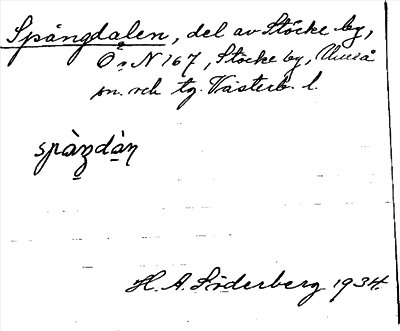 Spångdalen, del av Stöcke by,
Ö:a N 167, Stöcke by, Umeå
sn. och tg. Västerb. l.
spàŋdàn
H. A. Söderberg 1934.